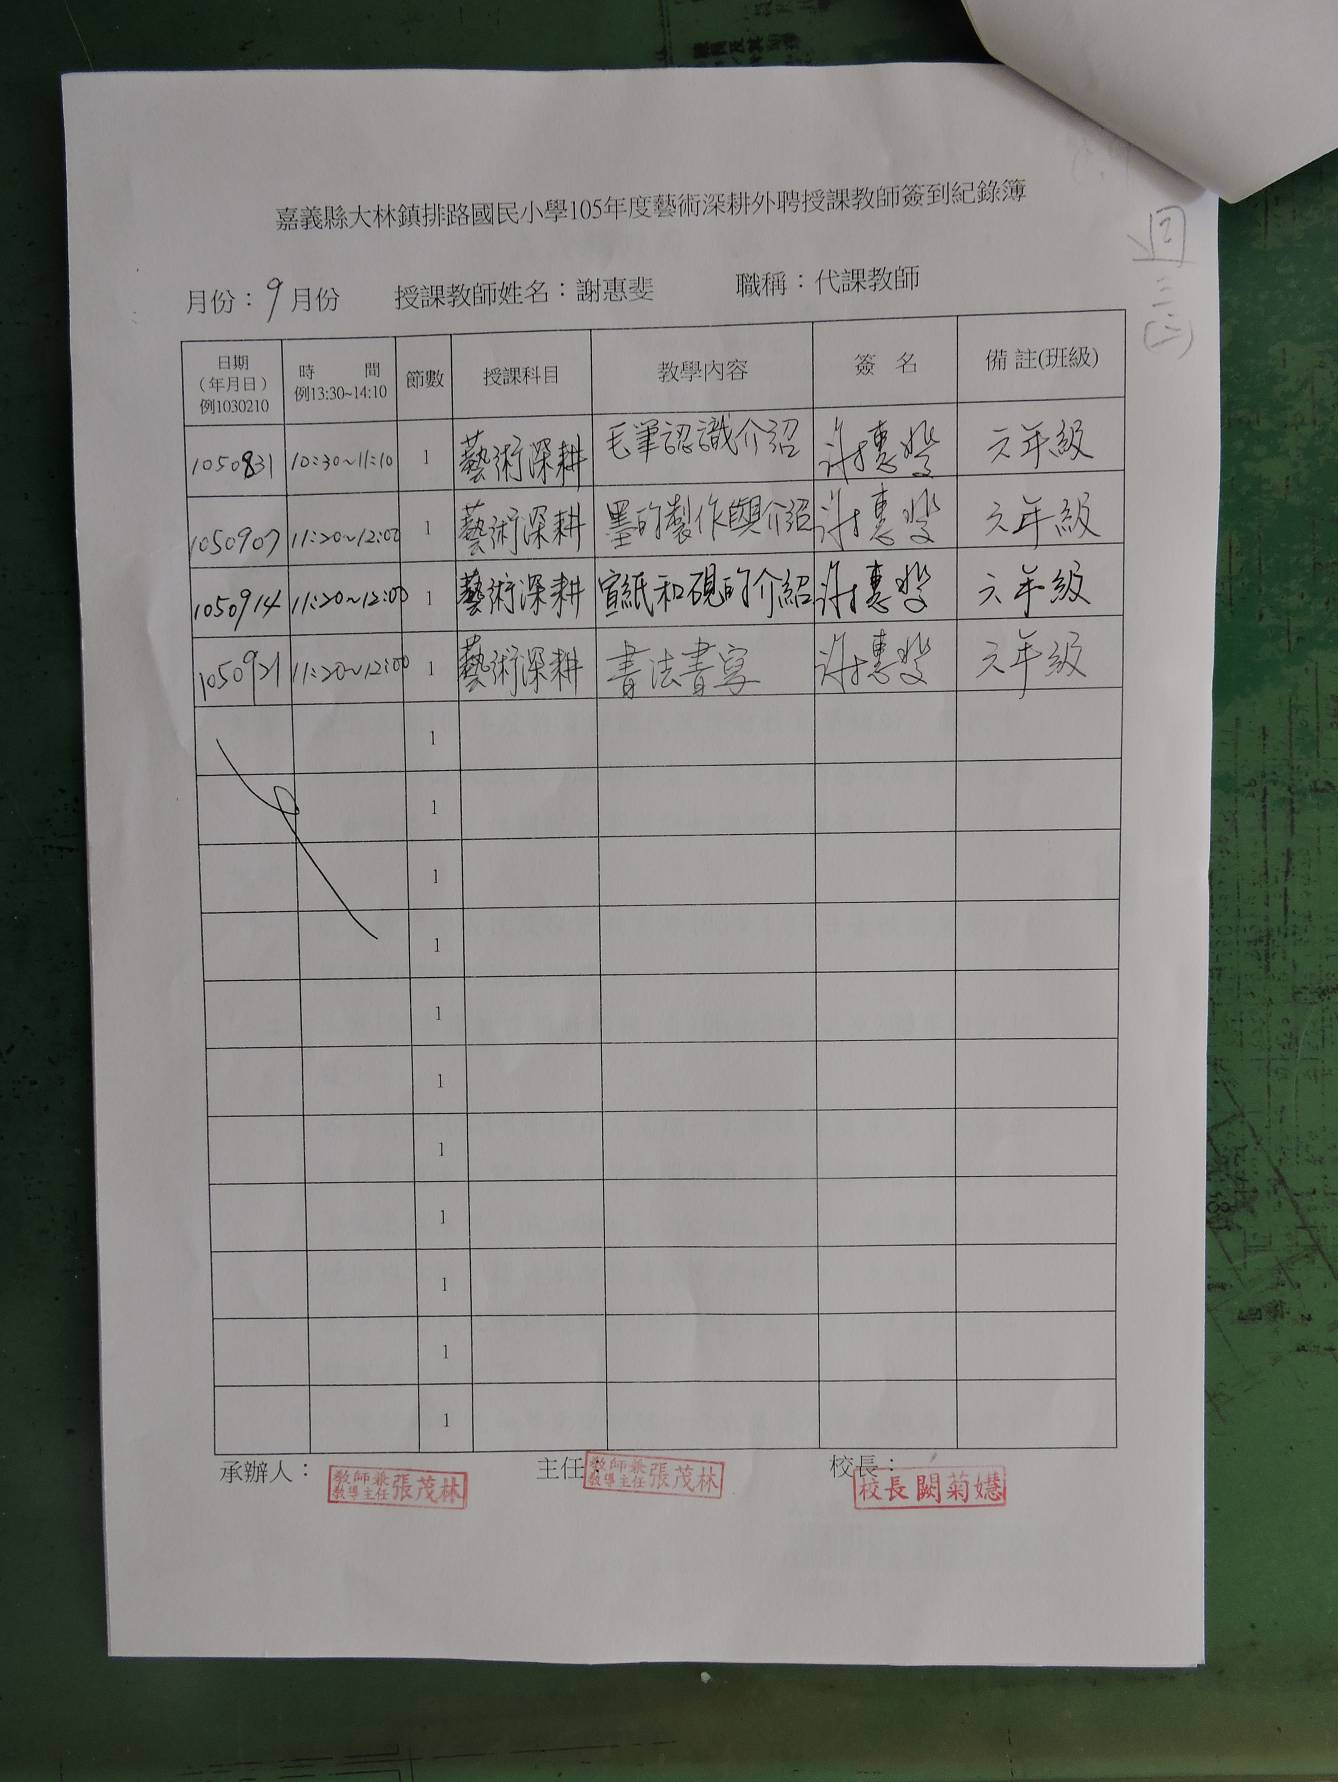 嘉義縣大林鎮排路國民小學105年度藝術深耕外聘授課教師簽到紀錄簿
月份：9月份 授課教師姓名：謝惠斐 職稱：代課教師
週三
日期（年月日）例1030210 時 間 例13:30~14:10 節數 授課科目 教學內容 簽 名 備 註(班級)
1050831 10:30~11:10 1 藝術深耕 毛筆認識介紹 謝惠斐 六年級
1050907 11:20~12:00 1 藝術深耕 墨的製作與介紹 謝惠斐 六年級
1050914 11:20~12:00 1 藝術深耕 宣紙和硯的介紹 謝惠斐 六年級
1050921 11:20~12:00 1 藝術深耕 書法書寫 謝惠斐 六年級
1
1
1
1
1
1
1
1
1
1
1
承辦人： 教師兼教導主任 張茂林 主任： 教師兼教導主任 張茂林 校長： 校長 闕菊嬑